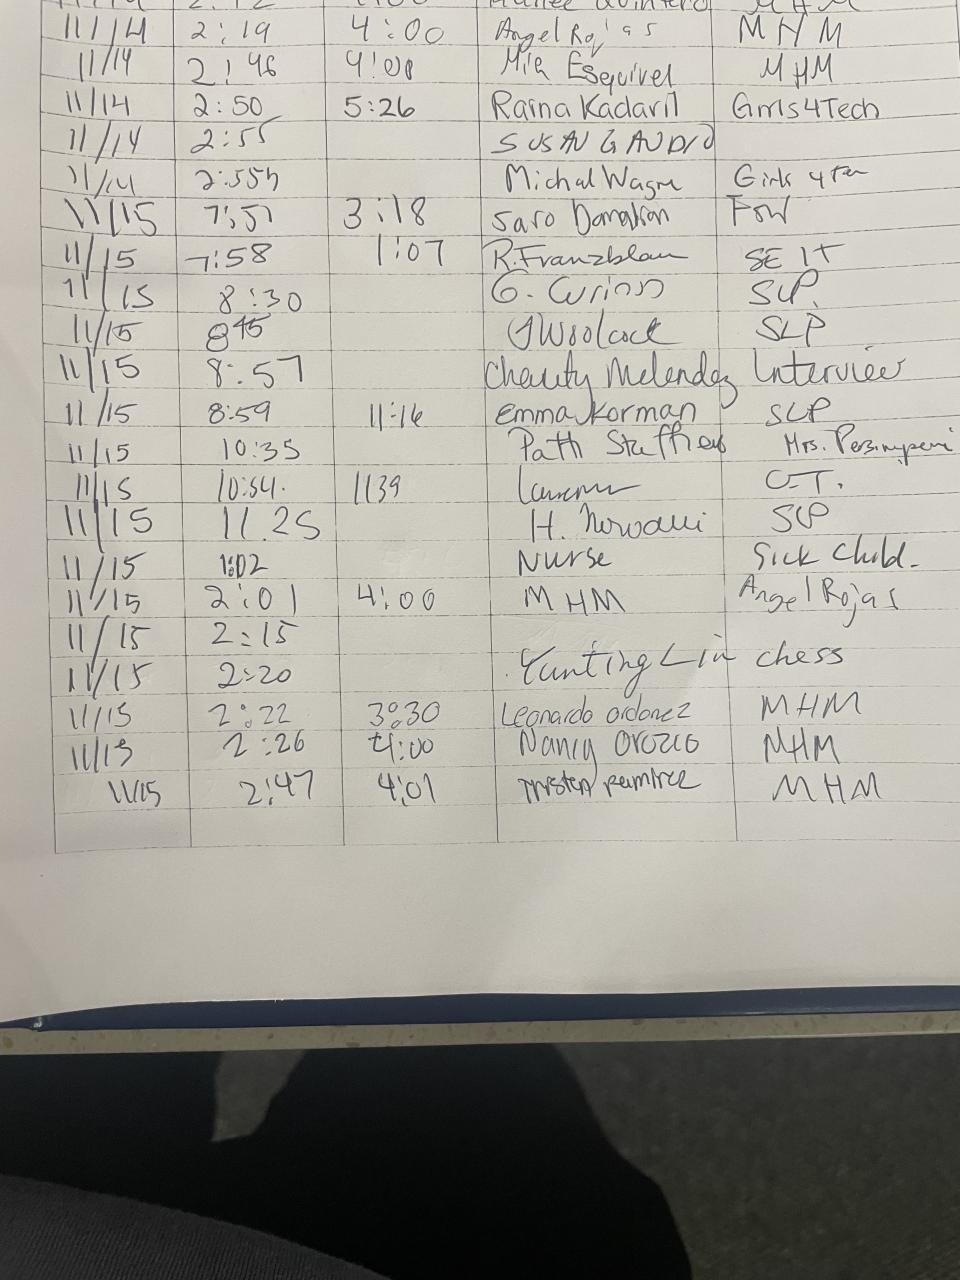 11/14 2:19 4:00 Angel Rojas MHM
11/14 2:46 4:00 Mia Esquivel MHM
11/14 2:50 5:26 Raina Kadavil Girls4Tech
11/14 2:55 SUSAN GAUDIO
11/14 2:55 Michal Girls 4
11/15 7:57 3:18
11/15 7:58 1:07 R. Franzblau SEIT
11/15 8:30 G. SLP.
11/15 845 SLP
11/15 8:57 Melendez Interview
11/15 8:59 11:16 emma Korman SLP
11/15 10:35 Mrs.
11/15 10:54. 1139 O.T.
11/15 11.25 H. SLP
11/15 1:02 Nurse Sick Child.
11/15 2:01 4:00 MHM Angel Rojas
11/15 2:15
11/15 2:20 Yunting Lin chess
11/15 2:22 3:30 Leonardo ordonez MHM
11/15 2:26 4:00 Nancy Orozco MHM
11/15 2:47 4:01 MHM